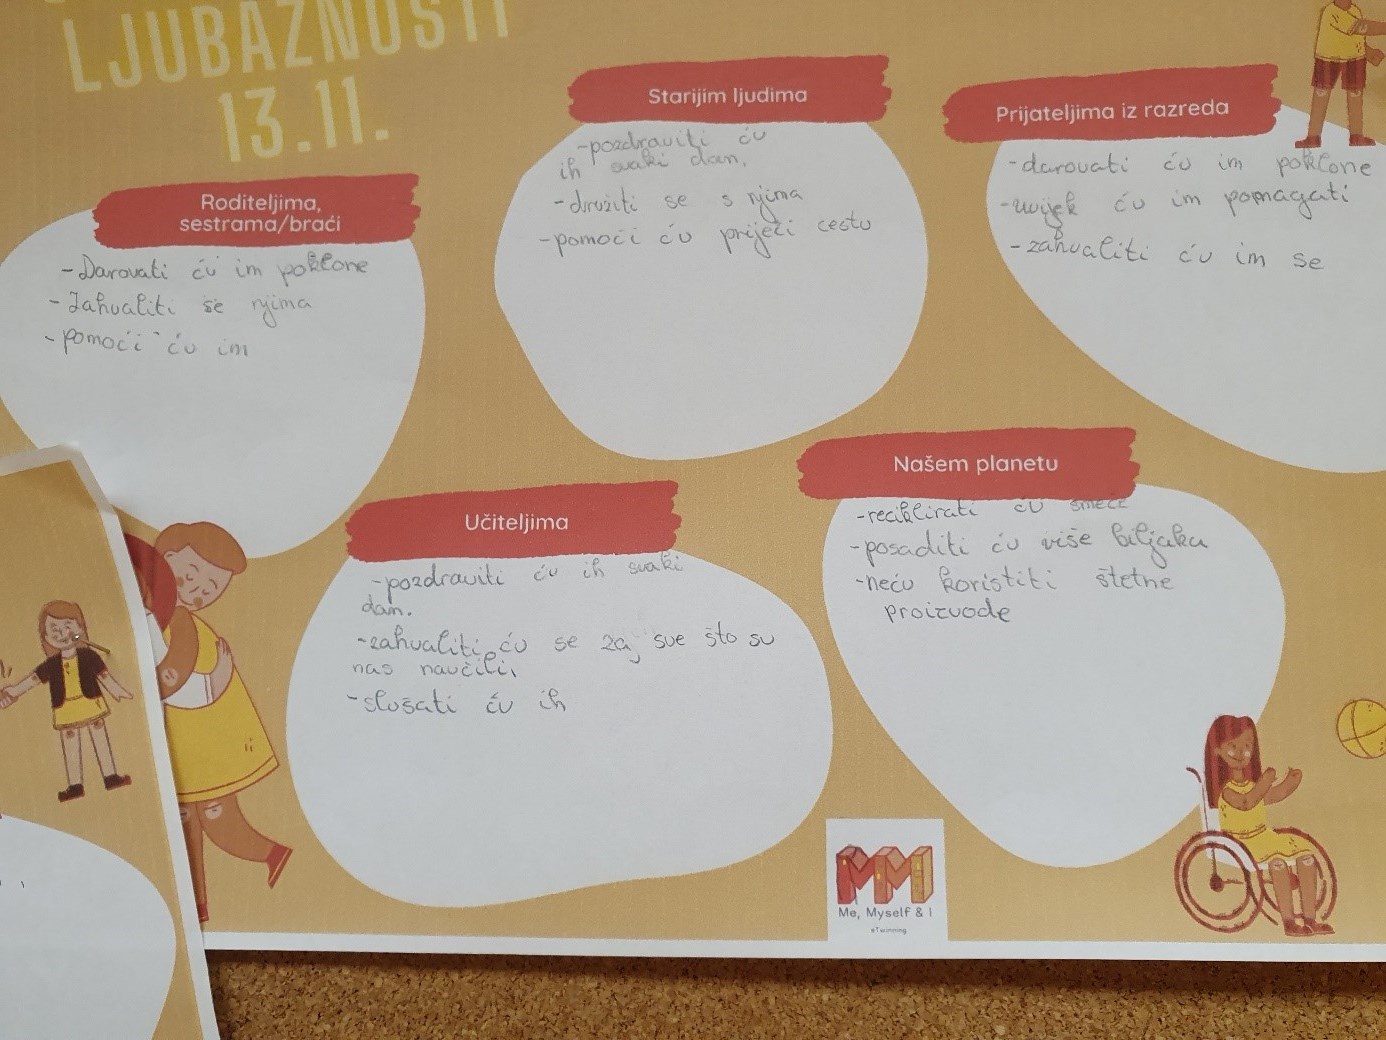 LJUBAZNOSTI
13.11.
Roditeljima,
sestrama/braći
-Darovati ću im poklone
-Zahvaliti se njima
-pomoći ću im
Starijim ljudima
-pozdraviti ću
ih svaki dan.
-družiti se s njima
-pomoći ću prijeći cestu
Prijateljima iz razreda
-darovati ću im poklone
-uvijek ću im pomagati
-zahvaliti ću im se
Učiteljima
-pozdraviti ću ih svaki
dan.
-zahvaliti ću se za sve što su
nas naučili.
-slušati ću ih
Našem planetu
-reciklirati ću smeće
-posaditi ću više biljaka
-neću koristiti štetne
proizvode
MM
Me, Myself & I
eTwinning